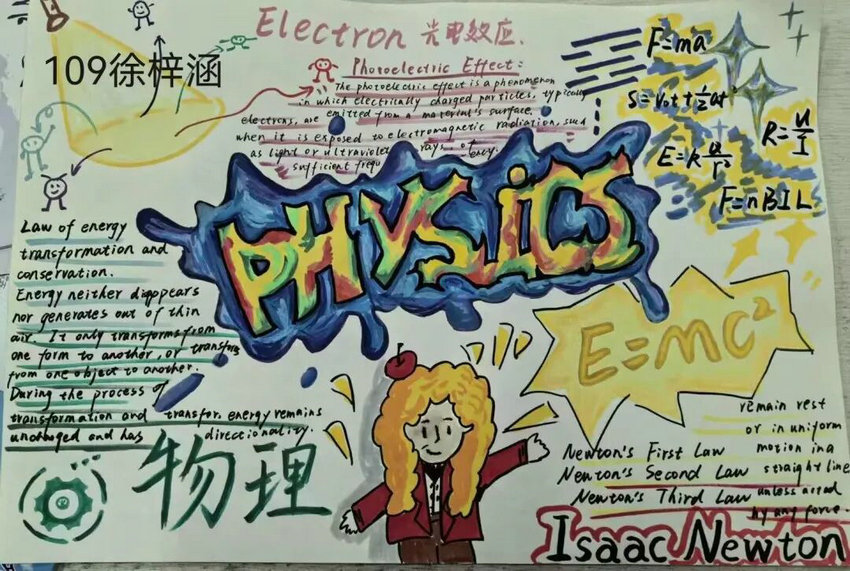 Electron 光电效应.
109徐梓涵
Photoelectric Effect:
The photoelectric effect is a phenomenon
in which electrically charged particles, typically
electrons, are emitted from a material's surface.
when it is exposed to electromagnetic radiation, such
as light or ultraviolet rays, of
sufficient frequency.
F=ma
S=V₀t+½at²
R=U/I
F=nBIL
PHYSICS
Law of energy
transformation and
conservation.
Energy neither disappears
nor generates out of thin
air. It only transforms from
one form to another, or transfers
from one object to another.
During the process of
transformation and transfer, energy remains
and has directionality.
物理
E=mc²
Newton's First Law
Newton's Second Law
Newton's Third Law
remain rest
or in uniform
motion in a
straight line
unless acted
by any force.
Isaac Newton